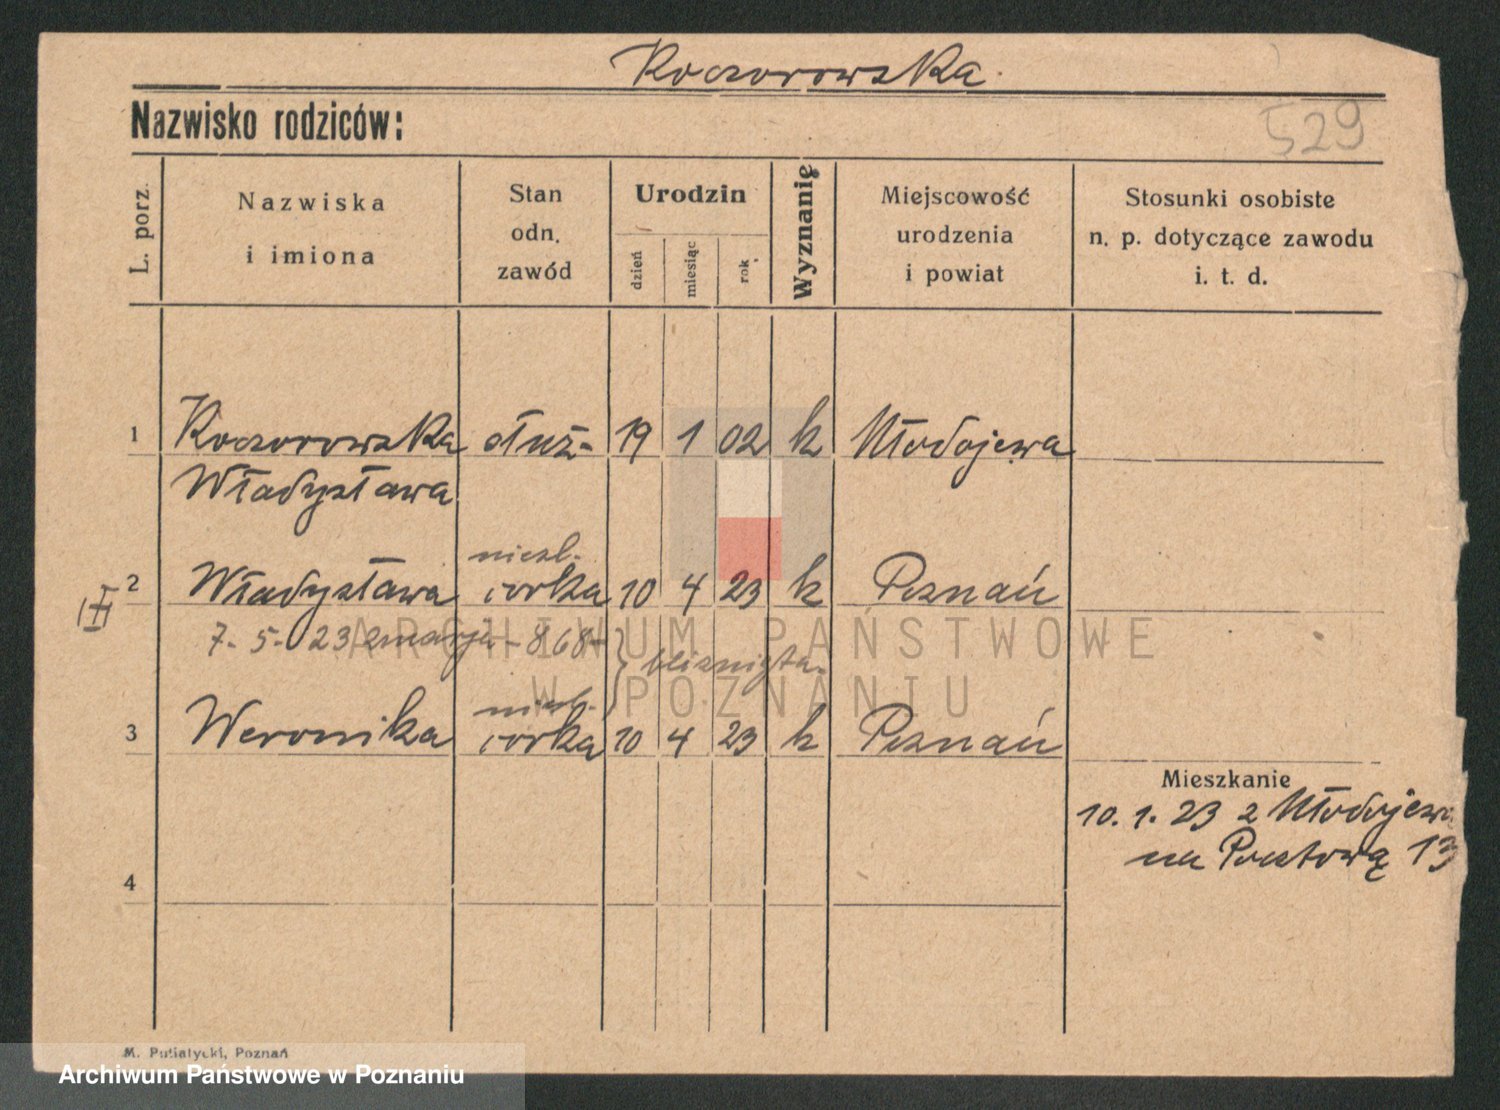 Koczorowska.
Nazwisko rodziców:
529
L. porz.
Nazwiska
i imiona
Stan
odn.
zawód
Urodzin
dzień
miesiąc
rok
Wyznanię
Miejscowość
urodzenia
i powiat
Stosunki osobiste
n. p. dotyczące zawodu
i. t. d.
1 Koczorowska służ- 19 1 02 k Młodojewa
Władysława
niezl.
2 Władysława córka 10 4 23 k Poznań
7. 5. 23 zmarła - 868-
bliznięta
niezl.
3 Weronika córka 10 4 23 k Poznań
Mieszkanie
10. 1. 23 z Młodojewa
na Pocztową 13
4
M. Putiatycki, Poznań
ARCHIWUM PAŃSTWOWE
W POZNANIU
Archiwum Państwowe w Poznaniu